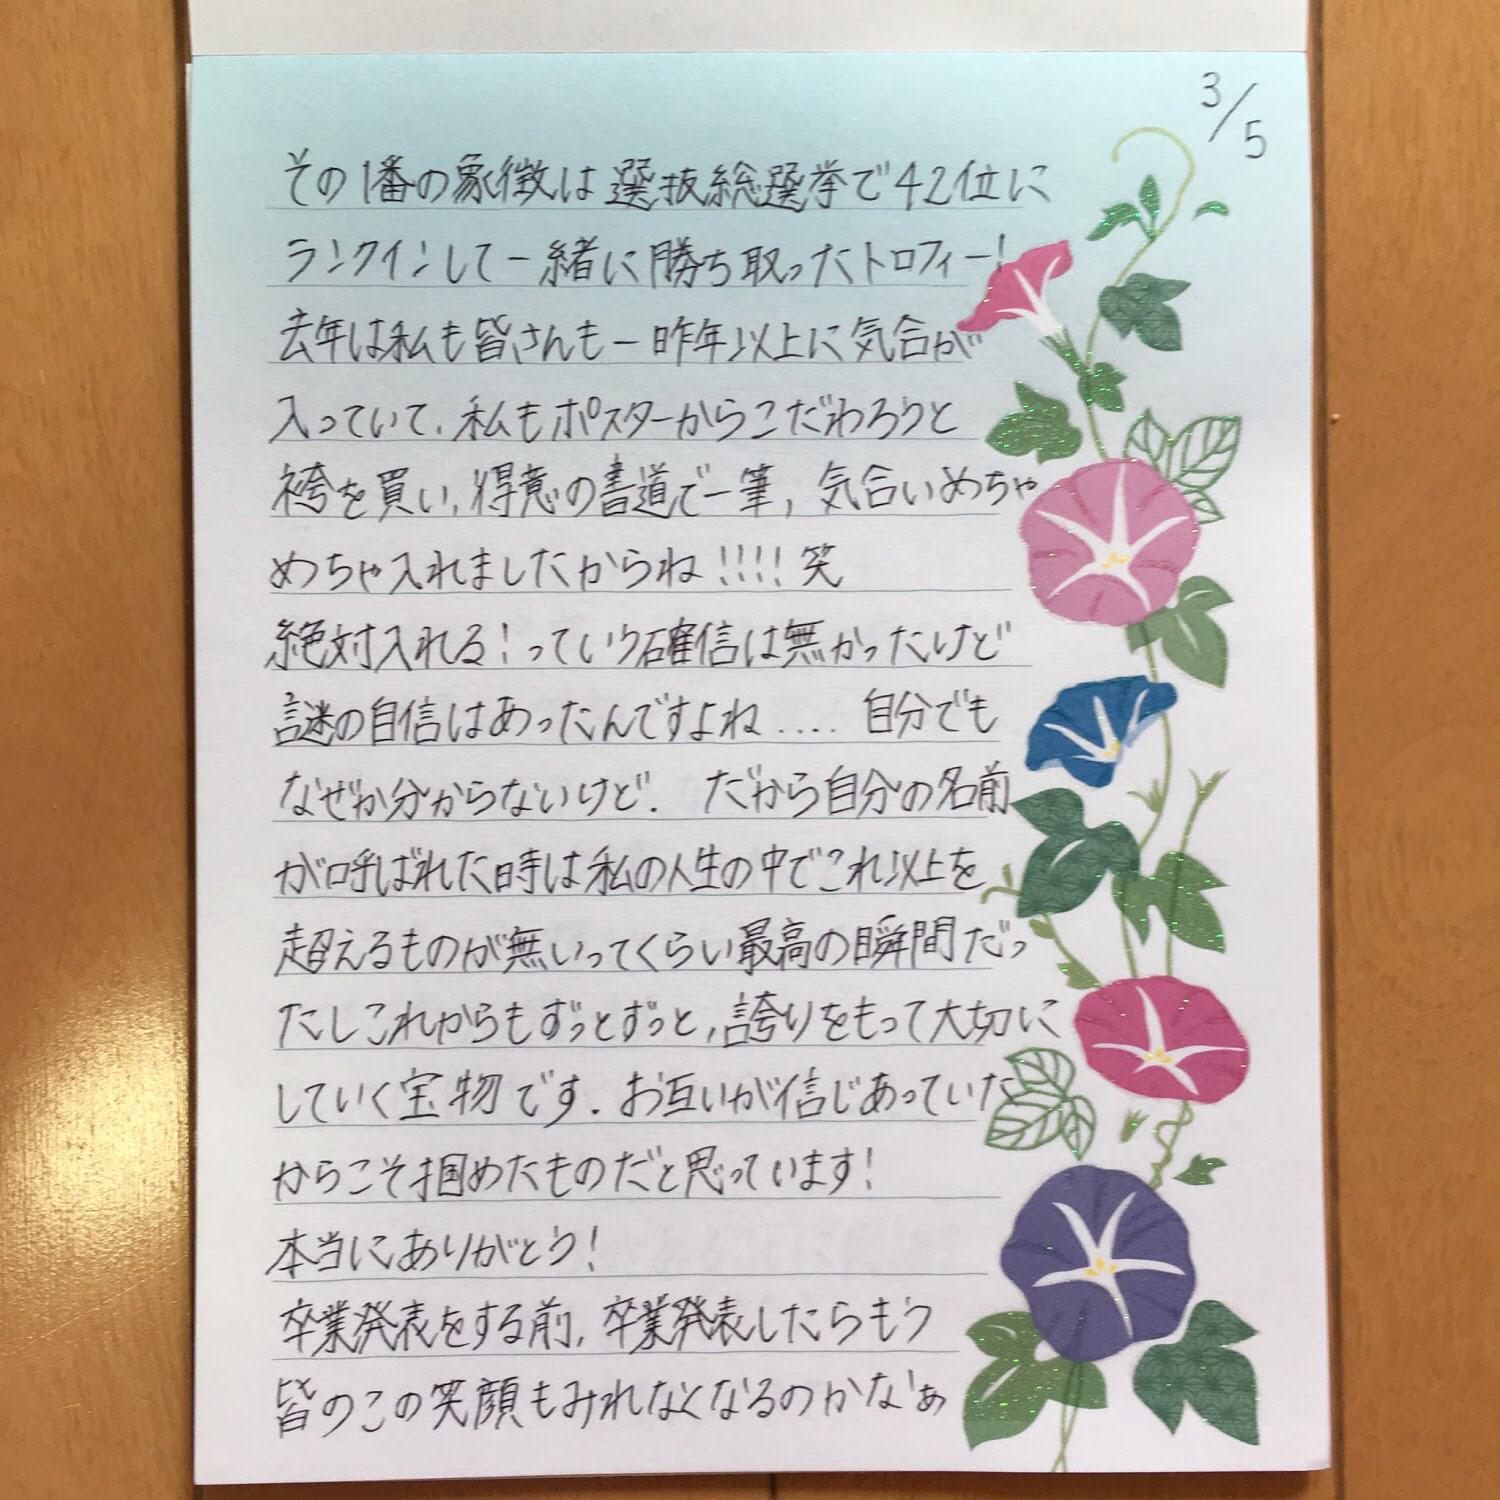 3/5
その1番の象徴は選抜総選挙で42位に
ランクインして一緒に勝ち取ったトロフィー!
去年は私も皆さんも一昨年以上に気合が
入っていて、私もポスターからこだわろうと
袴を買い、得意の書道で一筆、気合いめちゃ
めちゃ入れましたからね!!!!笑
絶対入れる!っていう確信は無かったけど
謎の自信はあったんですよね.... 自分でも
なぜか分からないけど. だから自分の名前
が呼ばれた時は私の人生の中でこれ以上を
超えるものが無いってくらい最高の瞬間だっ
たしこれからもずっとずっと、誇りをもって大切に
していく宝物です. お互いが信じあっていた
からこそ掴めたものだと思っています!
本当にありがとう!
卒業発表をする前、卒業発表したらもう
皆のこの笑顔もみれなくなるのかなぁ